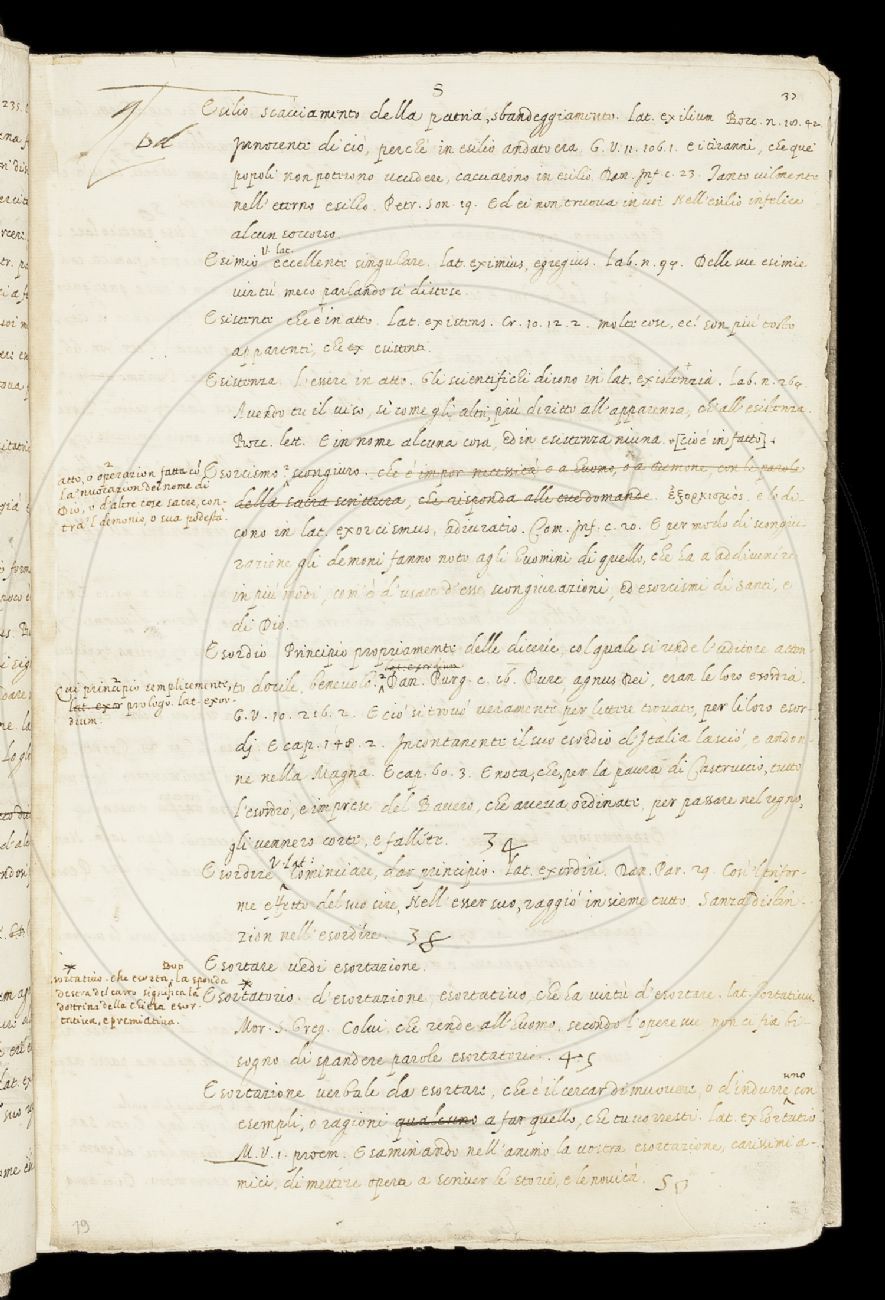 S
32
Esilio scacciamento della patria, sbandeggiamento. Lat. exilium Bocc. n. 18. 42
Innocente di ciò, perchè in esilio andato era. G. V. 11. 106. 1. e i tiranni, che que'
popoli non potieno uccidere, cacciarono in esilio. Dan. Inf. c. 23. Tanto vilmente
nell'eterno esilio. Petr. Son. 19. Ed ei non truova in voi Nell'esilio infelice
alcun soccorso.
V. lat.
Esimio eccellente singulare. Lat. eximius, egregius. Lab. n. 94. Delle sue esimie
virtù meco parlando si distese.
Esistente che è in atto. Lat. existens. Cr. 10. 12. 2. molte cose, ec. son più tosto
apparenti, che esistenti.
Esistenza. L'essere in atto. Gli scientifichi dicono in lat. existentia. Lab. n. 264
Avendo tu il viso, sì come gli altri, più diritto all'apparenza, ch'all'esistenza.
Bocc. lett. E in nome alcuna cosa, ed in esistenza niuna [cioè in fatto]
Esorcismo scongiuro. che è impor necessità o a huomo, o a demone con le parole
atto, o operazion fatta cō
la 'nvocazion del nome di
Dio, o d'altre cose sacre, con-
tra 'l demonio, o sua podestà.
della sacra scrittura, che risponda alle tue domande. ἐξορκισμός. e lo di-
cono in lat. exorcismus, adiuratio. Com. Inf. c. 20. E per modo di scongiu-
razione gli demoni fanno noto agli huomini di quello, che ha a addivenire
in più modi, com'è d'usare d'esse scongiurazioni, ed esorcismi di Santi, e
di Dio.
Esordio Principio propriamente delle dicerie, col quale si rende l'auditore atten-
lat. exordium
to docile, benevolo. Dan. Purg. c. 16. Pure agnus Dei, eran le loro esordia.
Qui principio semplicemente,
lat. exor prologo. lat. exor-
dium.
G. V. 10. 216. 2. E ciò si trovò veramente per lettere trovate, per li loro esor-
dj. E cap. 148. 2. Incontanente il suo esordio d'Italia lasciò, e andon-
ne nella Magna. E cap. 60. 3. E nota, che, per la paura di Castruccio, tutto
l'esordio, e imprese del Bavero, che aveva ordinate, per passare nel regno,
gli vennero corte, e fallite. 34
V. Lat.
Esordire Cominciare, dar principio. Lat. exordiri. Dan. Par. 29. Così 'l trifor-
me effetto del suo sire, Nell'esser suo, raggiò insieme tutto. Sanza distin-
zion nell'esordire. 38
Esortare vedi esortazione.
sortativo. che esorta, la sponda
destra del carro significa la
dottrina della chiesa esor-
tativa, e premiativa.
Esortatorio. d'esortazione, esortativo, che ha virtù d'esortare. lat. hortativus
Mor. S. Greg. Colui, che rende all'huomo, secondo l'opere sue non ci fia bi-
sogno di spandere parole esortatorie. 45
Esortazione verbale da esortare, che è il cercar di muovere, o d'indurre uno con
esempli, o ragioni qualcuno a far quello, che tu vorresti. lat. exhortatio
M. V. 1. proem. Esaminando nell'animo la vostra esortazione, carissimi a-
mici, di mettere opera a scriver le storie, e le novità. 50
19